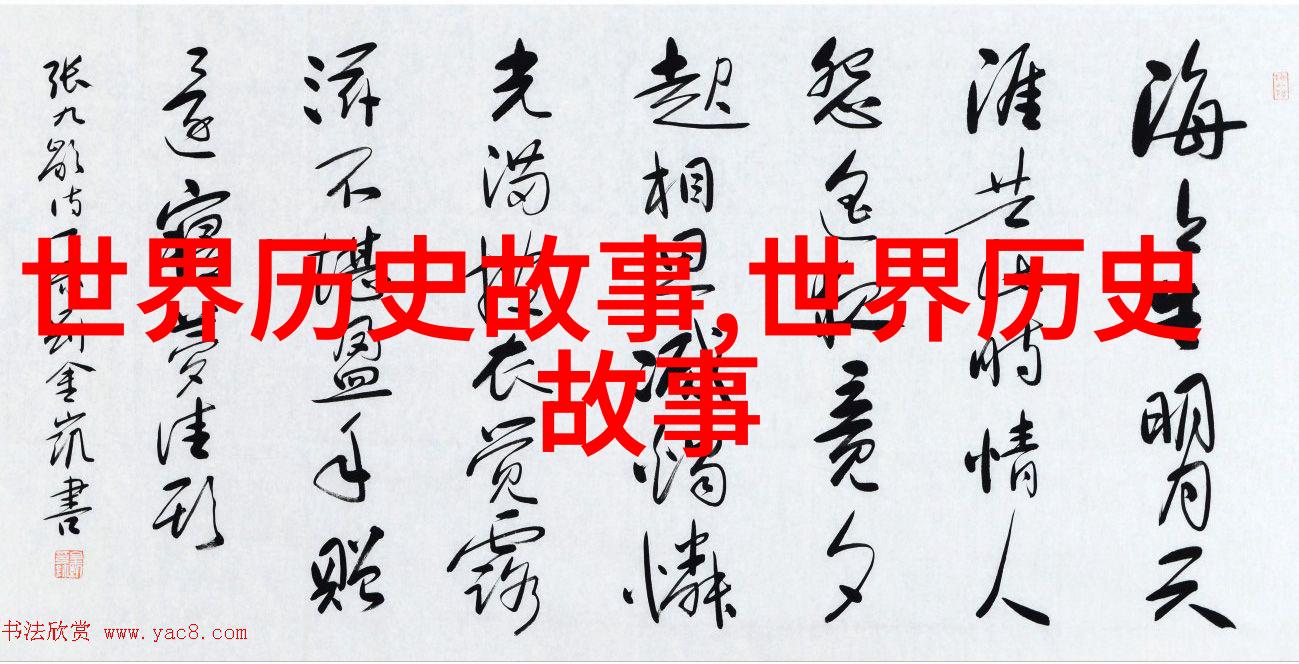 世界历史故事,世界历史
故事
海上生明月天
涯共此時情人
怨遥夜竟夕
起相思滅燭憐
光满披衣觉露
滋不堪盈手贈
還寝夢佳期
张九龄诗金凯書
书法欣赏 www.yac8.com